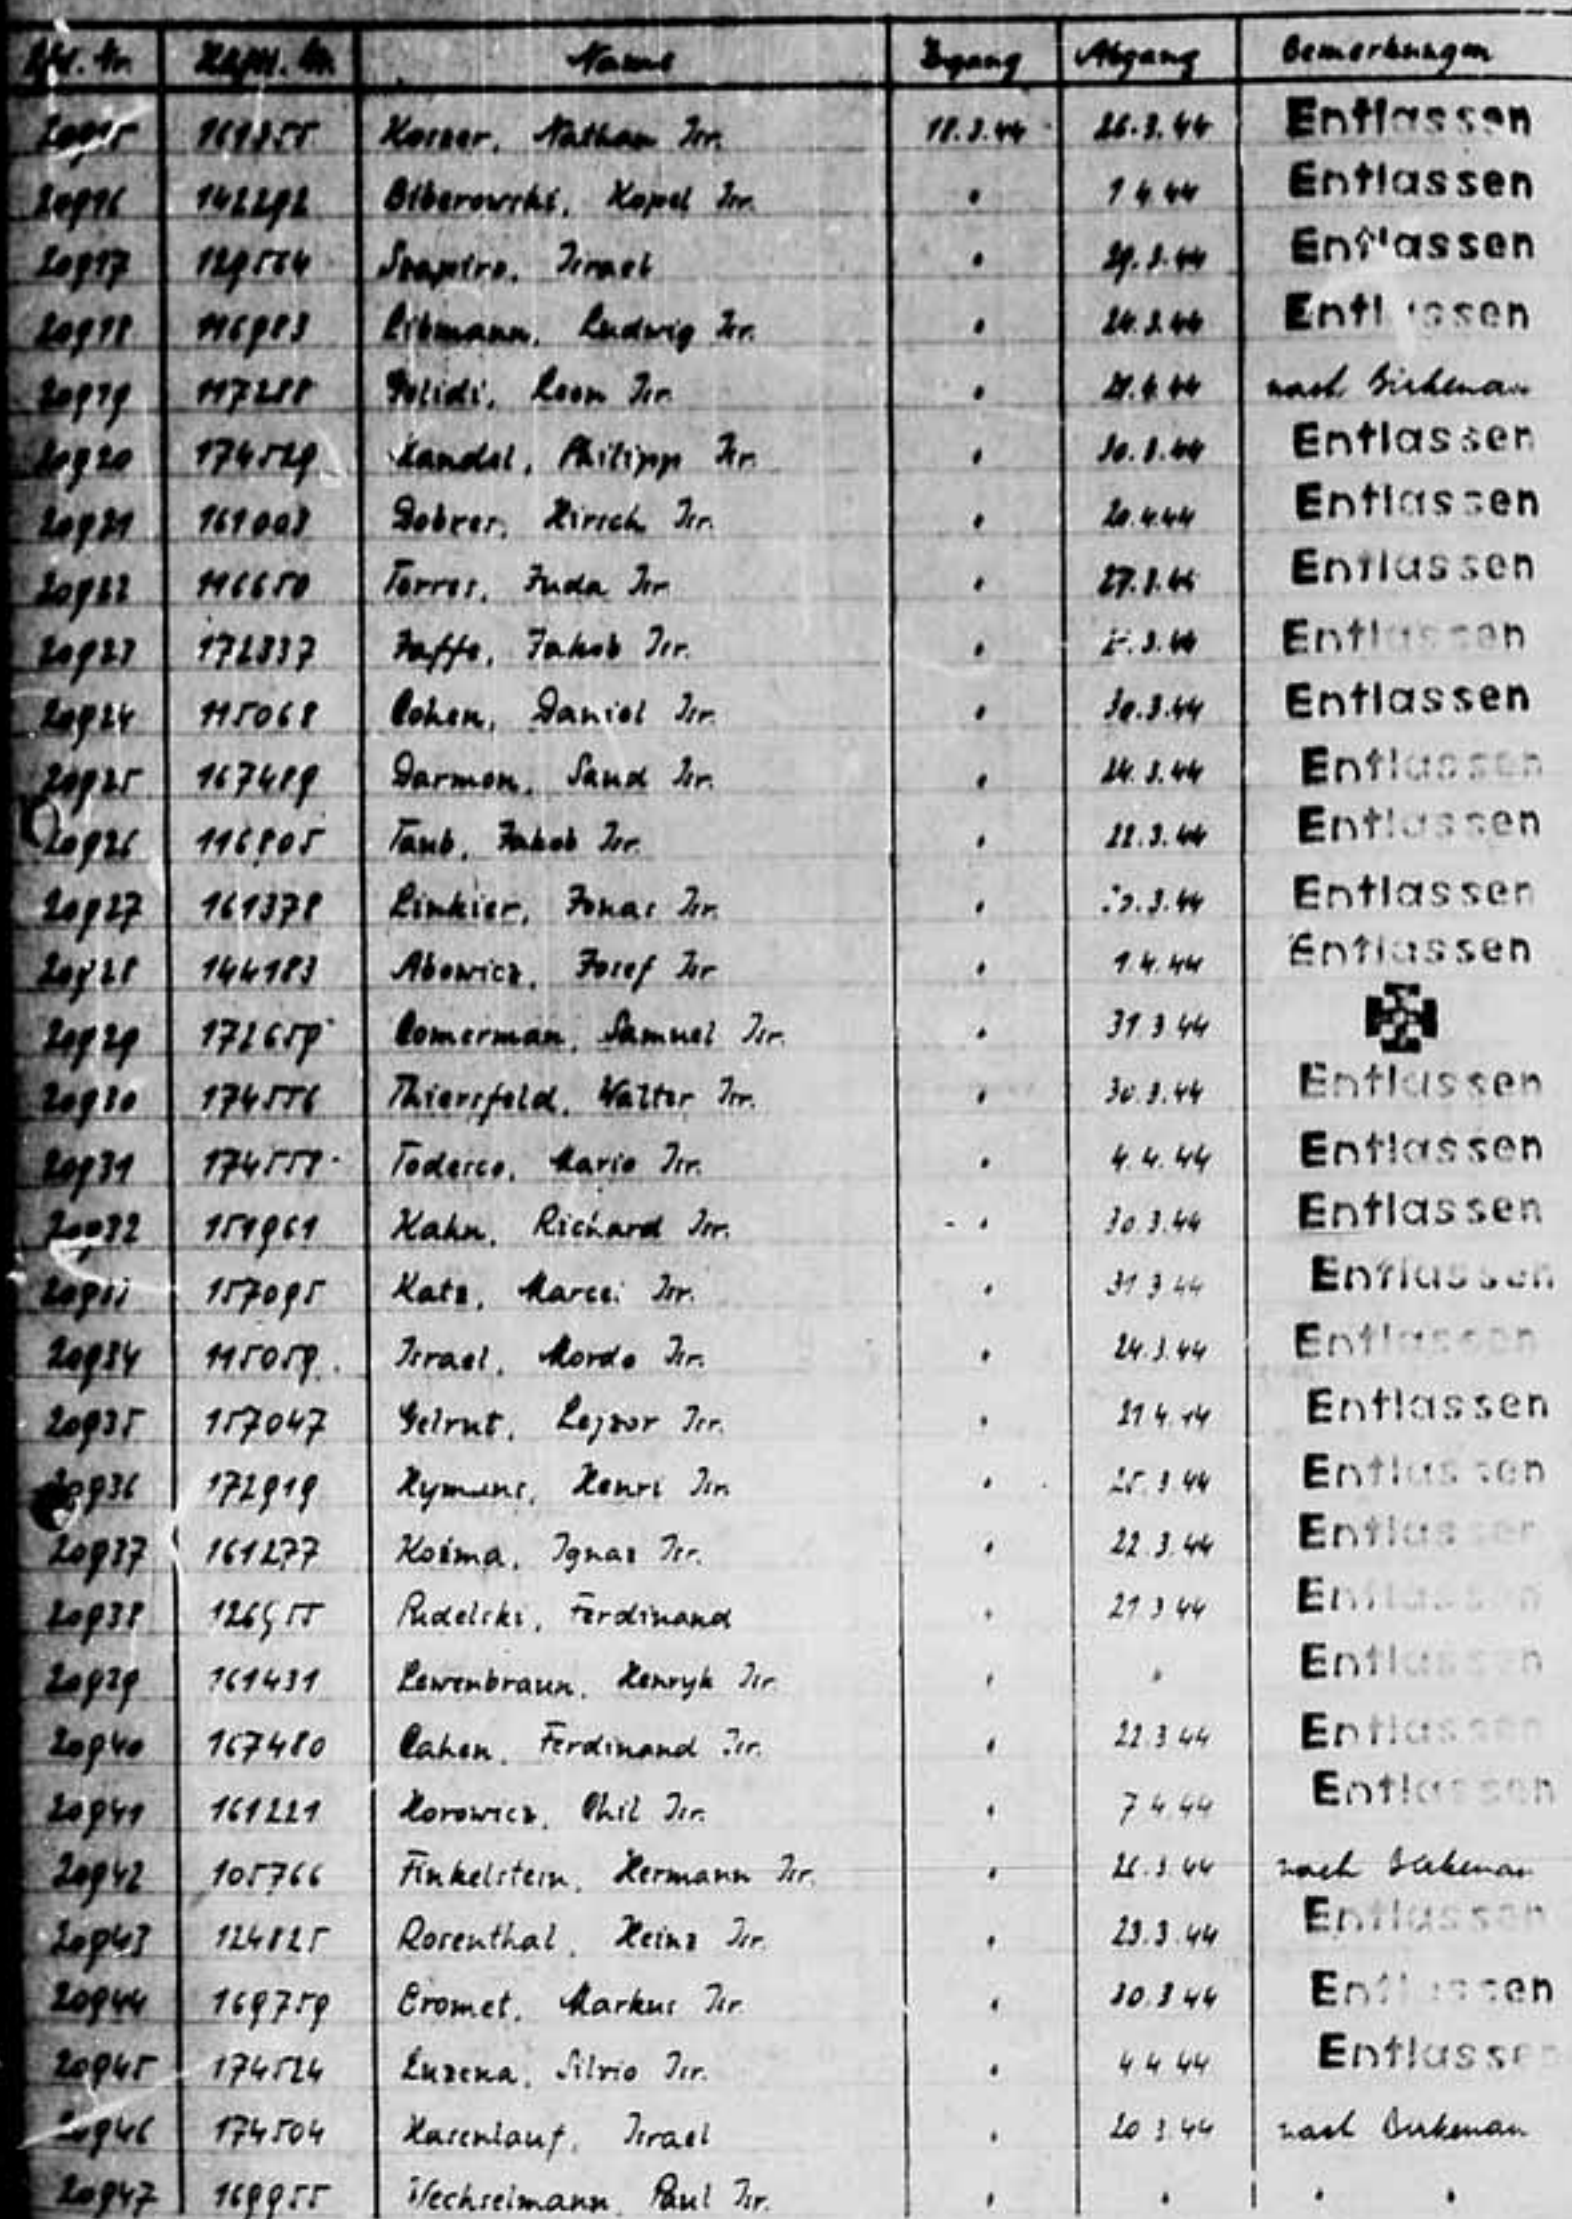 Lfd. Nr. Häftl. Nr. Name Zugang Abgang Bemerkungen
20915 161355 Korner, Nathan Isr. 18.3.44 26.3.44 Entlassen
20916 142292 Biberowski, Kopel Isr. " 1.4.44 Entlassen
20917 129564 Szapiro, Israel " 29.3.44 Entlassen
20918 116983 Libmann, Ludwig Isr. " 24.3.44 Entlassen
20919 117288 Leon Isr. " nach Birkenau
20920 174529 Kandel, Philipp Isr. " 30.3.44 Entlassen
20921 161003 Dobrer, Hirsch Isr. " 20.4.44 Entlassen
20922 116650 Torres, Juda Isr. " 27.3.44 Entlassen
20923 172337 Jaffe, Jakob Isr. " Entlassen
20924 115068 Cohen, Daniel Isr. " 30.3.44 Entlassen
20925 167489 Darmon, Saud Isr. " 24.3.44 Entlassen
20926 116805 Taub, Jakob Isr. " 22.3.44 Entlassen
20927 161378 Linkier, Jonas Isr. " Entlassen
20928 144183 Abowicz, Josef Isr. " 1.4.44 Entlassen
20929 172659 Comerman, Samuel Isr. " 31.3.44
20930 174556 Thiersfeld, Walter Isr. " 30.3.44 Entlassen
20931 174558 Todesco, Mario Isr. " 4.4.44 Entlassen
20932 151961 Kahn, Richard Isr. " 30.3.44 Entlassen
20933 157095 Katz, Marcei Isr. " 31.3.44 Entlassen
20934 115059 Israel, Mordo Isr. " 24.3.44 Entlassen
20935 157047 Gelrut, Lejzor Isr. " 21.4.44 Entlassen
20936 172919 Hymans, Henri Isr. " 25.3.44 Entlassen
20937 161277 Kozma, Ignaz Isr. " 22.3.44 Entlassen
20938 Rudelski, Ferdinand " 21.3.44 Entlassen
20939 161431 Lewenbraun, Henryk Isr. " " Entlassen
20940 167480 Cahen, Ferdinand Isr. " 22.3.44 Entlassen
20941 161221 Horowicz, Chil Isr. " 7.4.44 Entlassen
20942 105766 Finkelstein, Hermann Isr. " 26.3.44 nach Birkenau
20943 124825 Rosenthal, Heinz Isr. " 23.3.44 Entlassen
20944 169759 Cromet, Markus Isr. " 30.3.44 Entlassen
20945 174524 Luzena, Silvio Isr. " 4.4.44 Entlassen
20946 174504 Hasenlauf, Israel " 20.3.44 nach Birkenau
20947 169955 Wechselmann, Paul Isr. " " " "